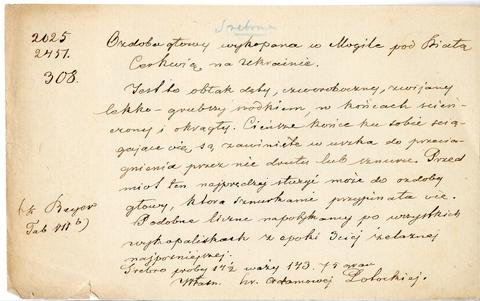 Srebrna
2025
2451.
303.
Ozdoba głowy wykopana w Mogile pod Białą
Cerkwią na Ukrainie.
Jest to obłąk dęty, czworoboczny, zwijany
lekko-grubszy środkiem, w końcach ścień-
czony i okrągły. Cieńsze końce ku sobie scią-
gające się, są zawinięte w uszka do przecią-
gnienia przez nie drutu lub sznura. Przed
miot ten najprędzej służyć może do ozdoby
głowy, która sznurkami przypinała się.
Podobne liczne napotykamy po wszystkich
wykopaliskach z epoki 3ciej żelaznej
najpóźniejszej.
Srebro próby 12 waży 173. 75 gram
Własn. hr. Adamowej Potockiej.
Beyer
Tab